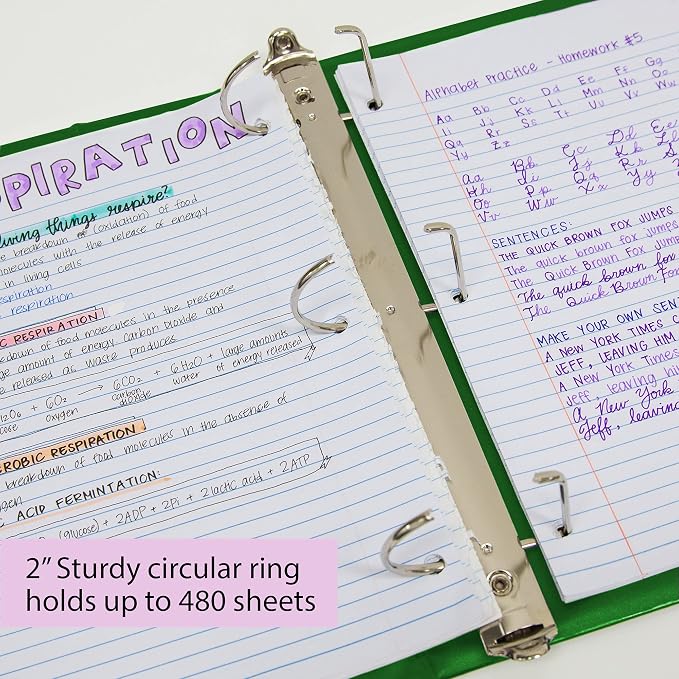 SPIRATION
living things respire?
e breakdown of (oxidation) of food
olecules with the release of energy
in living cells
respiration
respiration
IC RESPIRATION
eakdown of food molecules in the presence
ge amount of energy. Carbon Dioxide and
re released as waste produces.
H12O6 + 6O2 → 6CO2 + 6H2O + large amounts
cose oxygen carbon dioxide water of energy released
EROBIC RESPIRATION
breakdown of food molecules in the absence of
gen
C ACID FERMINTATION:
(glucose) + 2ADP + 2Pi → 2 lactic acid + 2ATP
Alphabet Practice - Homework #5
Aa Bb Cc Dd Ee Ff Gg
Ii Jj Kk Ll Mm Nn Oo
Qq Rr Ss Tt Uu Vv
Yy Zz
Aa Bb Cc Dd Ee
Hh Ii Jj Kk L
Oo Pp Qq Rr S
Vv Ww Xx Yy
SENTENCES:
THE QUICK BROWN FOX JUMPS
The quick brown fox jumps
The Quick Brown Fox Jum
The quick brown fox
The Quick Brown Fo
MAKE YOUR OWN SEN
A NEW YORK TIMES C
JEFF, LEAVING HIM
A New York Times
Jeff, leaving hi
A New York
Jeff, leavin
2" Sturdy circular ring
holds up to 480 sheets